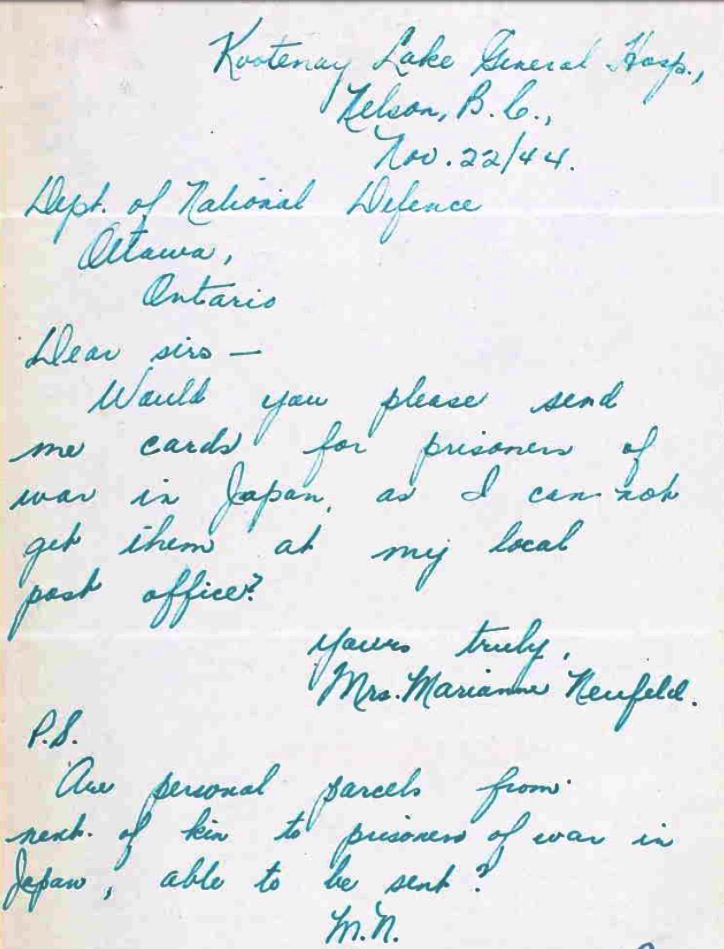 Kootenay Lake General Hosp.,
Nelson, B.C.,
Nov. 22/44.
Dept. of National Defence
Ottawa,
Ontario
Dear sirs —
Would you please send
me cards for prisoners of
war in Japan, as I can not
get them at my local
post office?
Yours truly,
Mrs. Marianne Neufeld.
P.S.
Are personal parcels from
next of kin to prisoners of war in
Japan, able to be sent?
M.N.